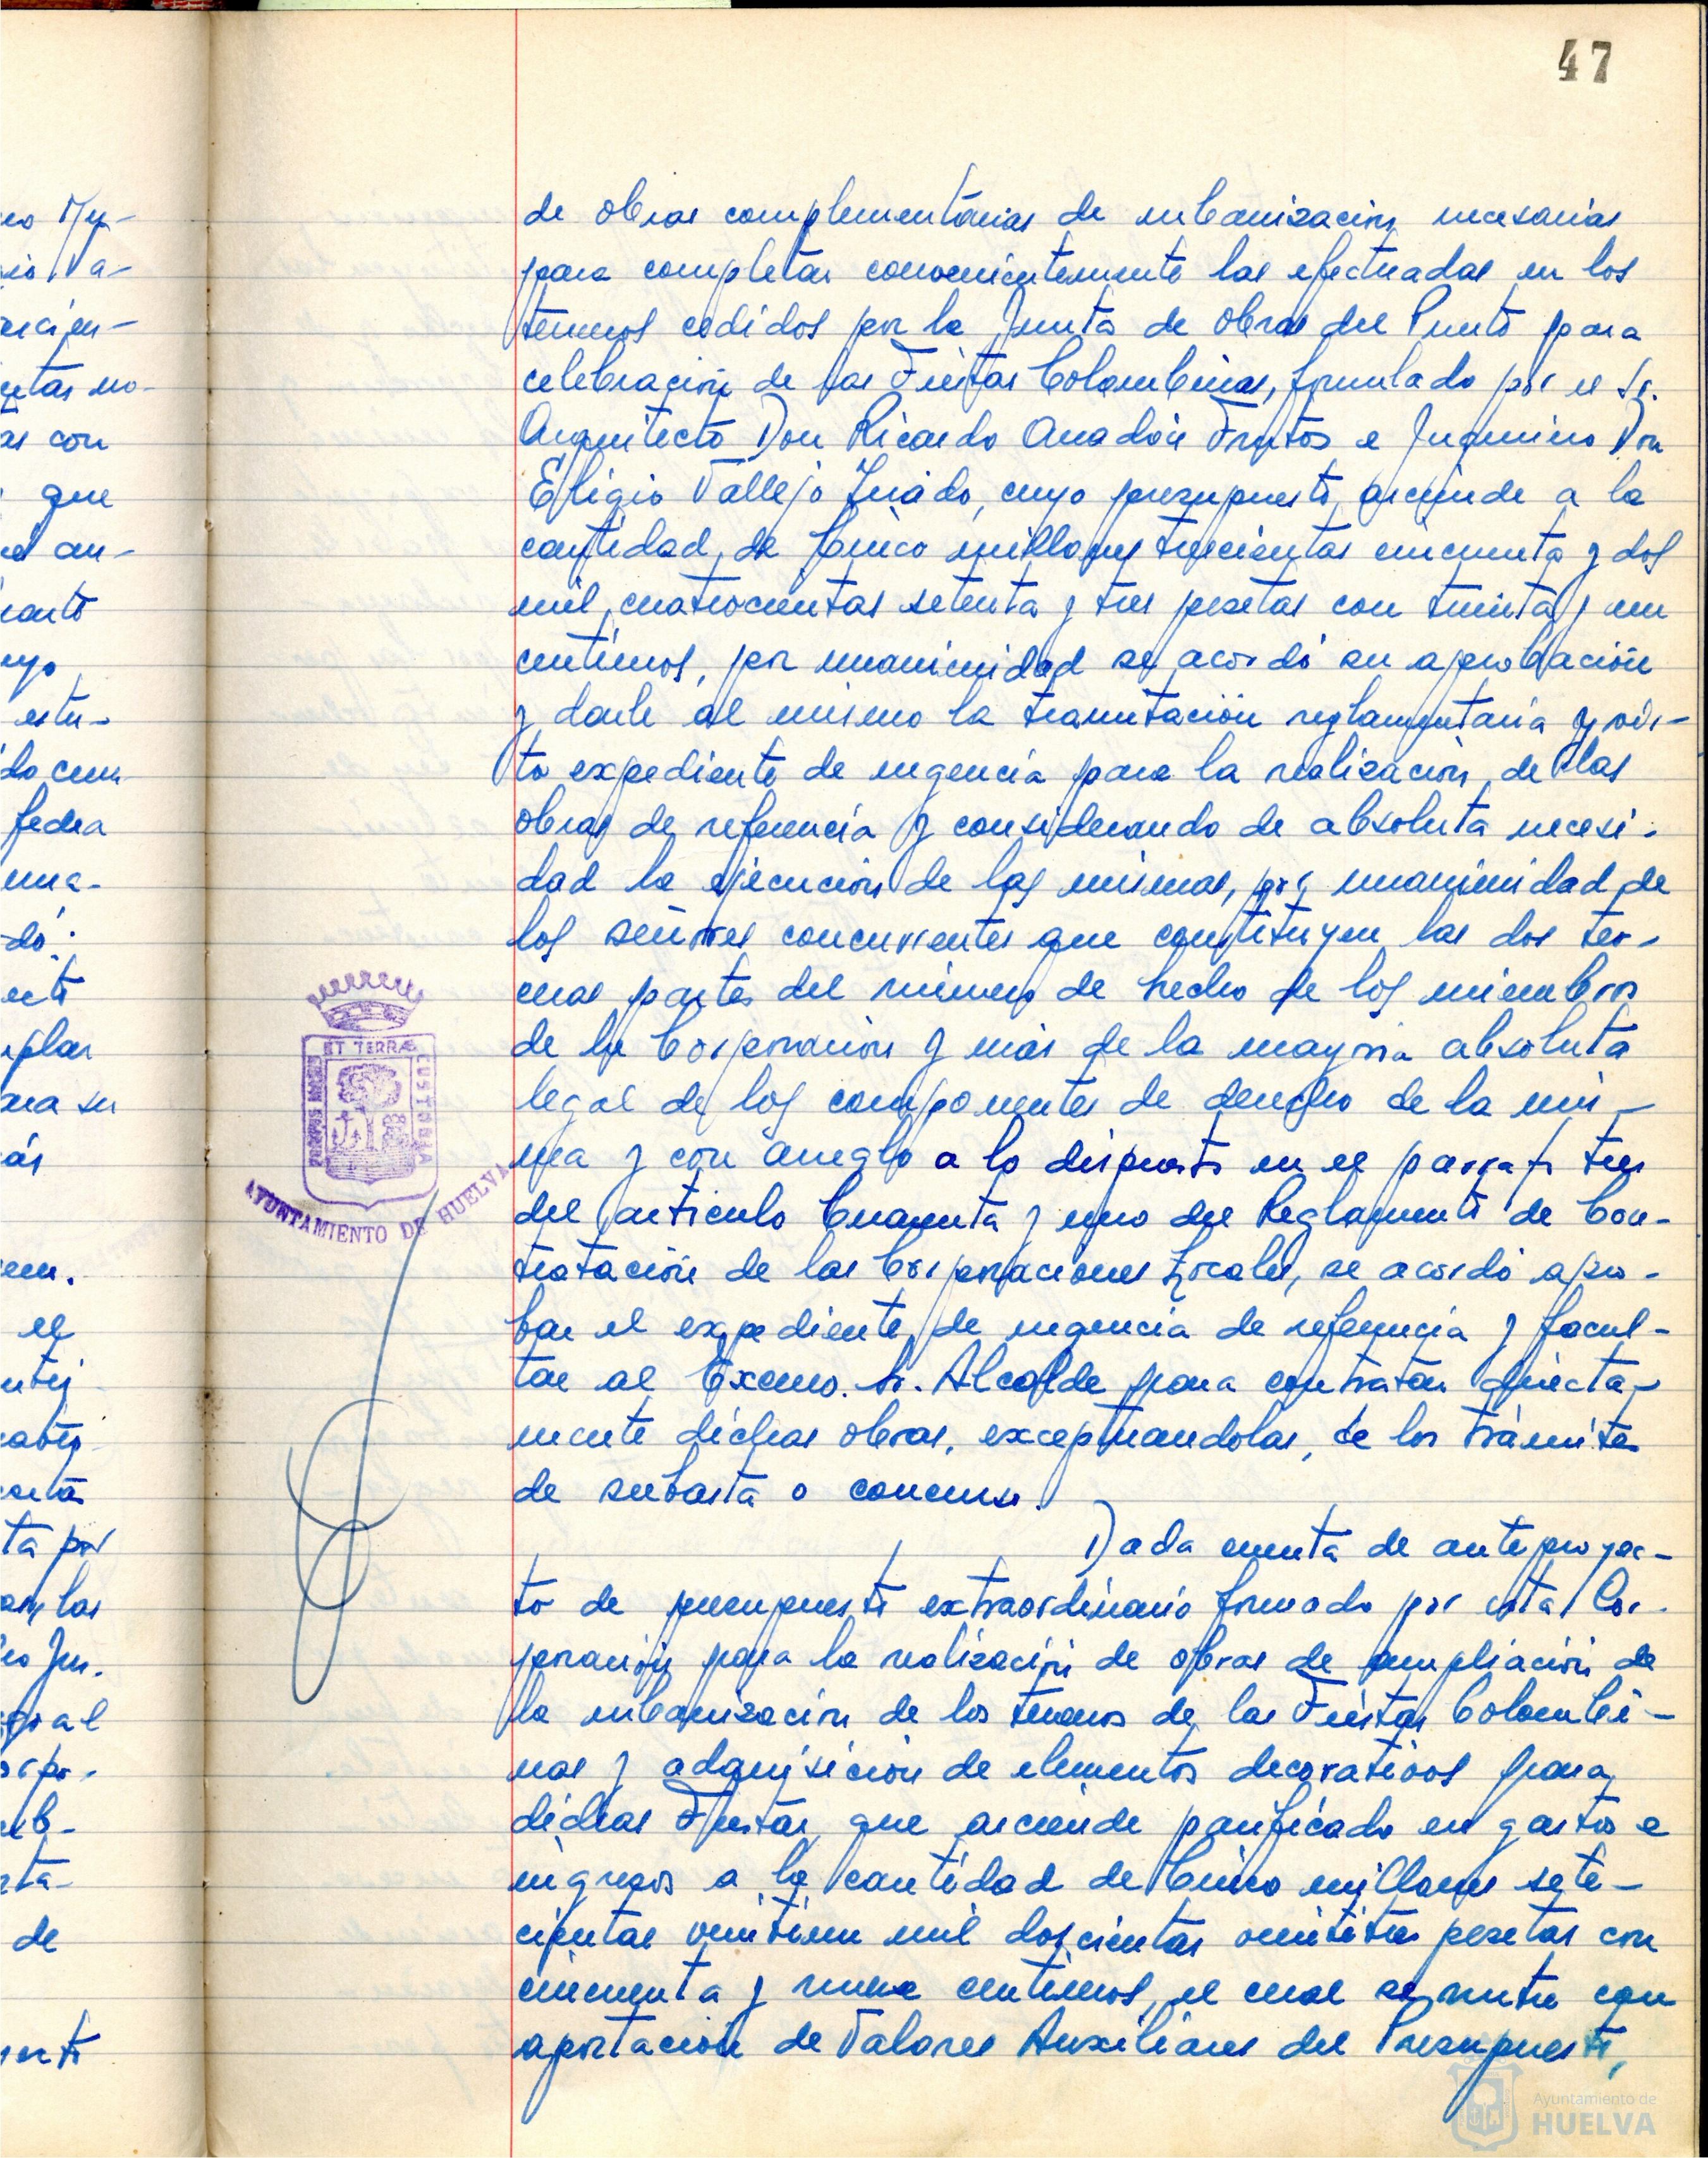 47
de obras complementarias de urbanización necesarias
para completar convenientemente las efectuadas en los
terrenos cedidos por la Junta de Obras del Puerto para
celebración de las Fiestas Colombinas, formulado por el Sr.
Arquitecto Don Ricardo Anadón Frutos e Ingeniero Don
Eligio Vallejo, cuyo presupuesto asciende a la
cantidad de Cinco millones trescientas cincuenta y dos
mil cuatrocientas setenta y tres pesetas con treinta y un
centimos, por unanimidad se acordó su aprobación
y darle al mismo la tramitación reglamentaria y vis-
to expediente de urgencia para la realización de las
obras de referencia y considerando de absoluta necesi-
dad la ejecución de las mismas, por unanimidad de
los señores concurrentes que constituyen las dos ter-
ceras partes del número de hecho de los miembros
de la Corporación y más de la mayoria absoluta
legal de los componentes de derecho de la mis-
ma y con arreglo a lo dispuesto en el parrafo tres
del articulo Cuarenta y uno del Reglamento de Con-
tratación de las Corporaciones Locales, se acordó apro-
bar el expediente de urgencia de referencia y facul-
tar al Excmo. Sr. Alcalde para contratar directa-
mente dichas obras, exceptuandolas de los trámites
de subasta o concurso.
Dada cuenta de anteproyec-
to de presupuesto extraordinario formado por esta Cor-
poración para la realización de obras de ampliación de
la urbanización de los terrenos de las Fiestas Colombi-
nas y adquisición de elementos decorativos para
dichas Fiestas, que asciende panificado en gastos e
ingresos a la cantidad de Cinco millones sete-
cientas veintiun mil doscientas veintitres pesetas con
cincuenta y nueve centimos, el cual se nutre con
aportación de Valores Auxiliares del Presupuesto,
ET TERRÆ
CUSTODIA
PORTUS MARIS
AYUNTAMIENTO DE HUELVA
que
fedea
el
de
Ayuntamiento de
HUELVA